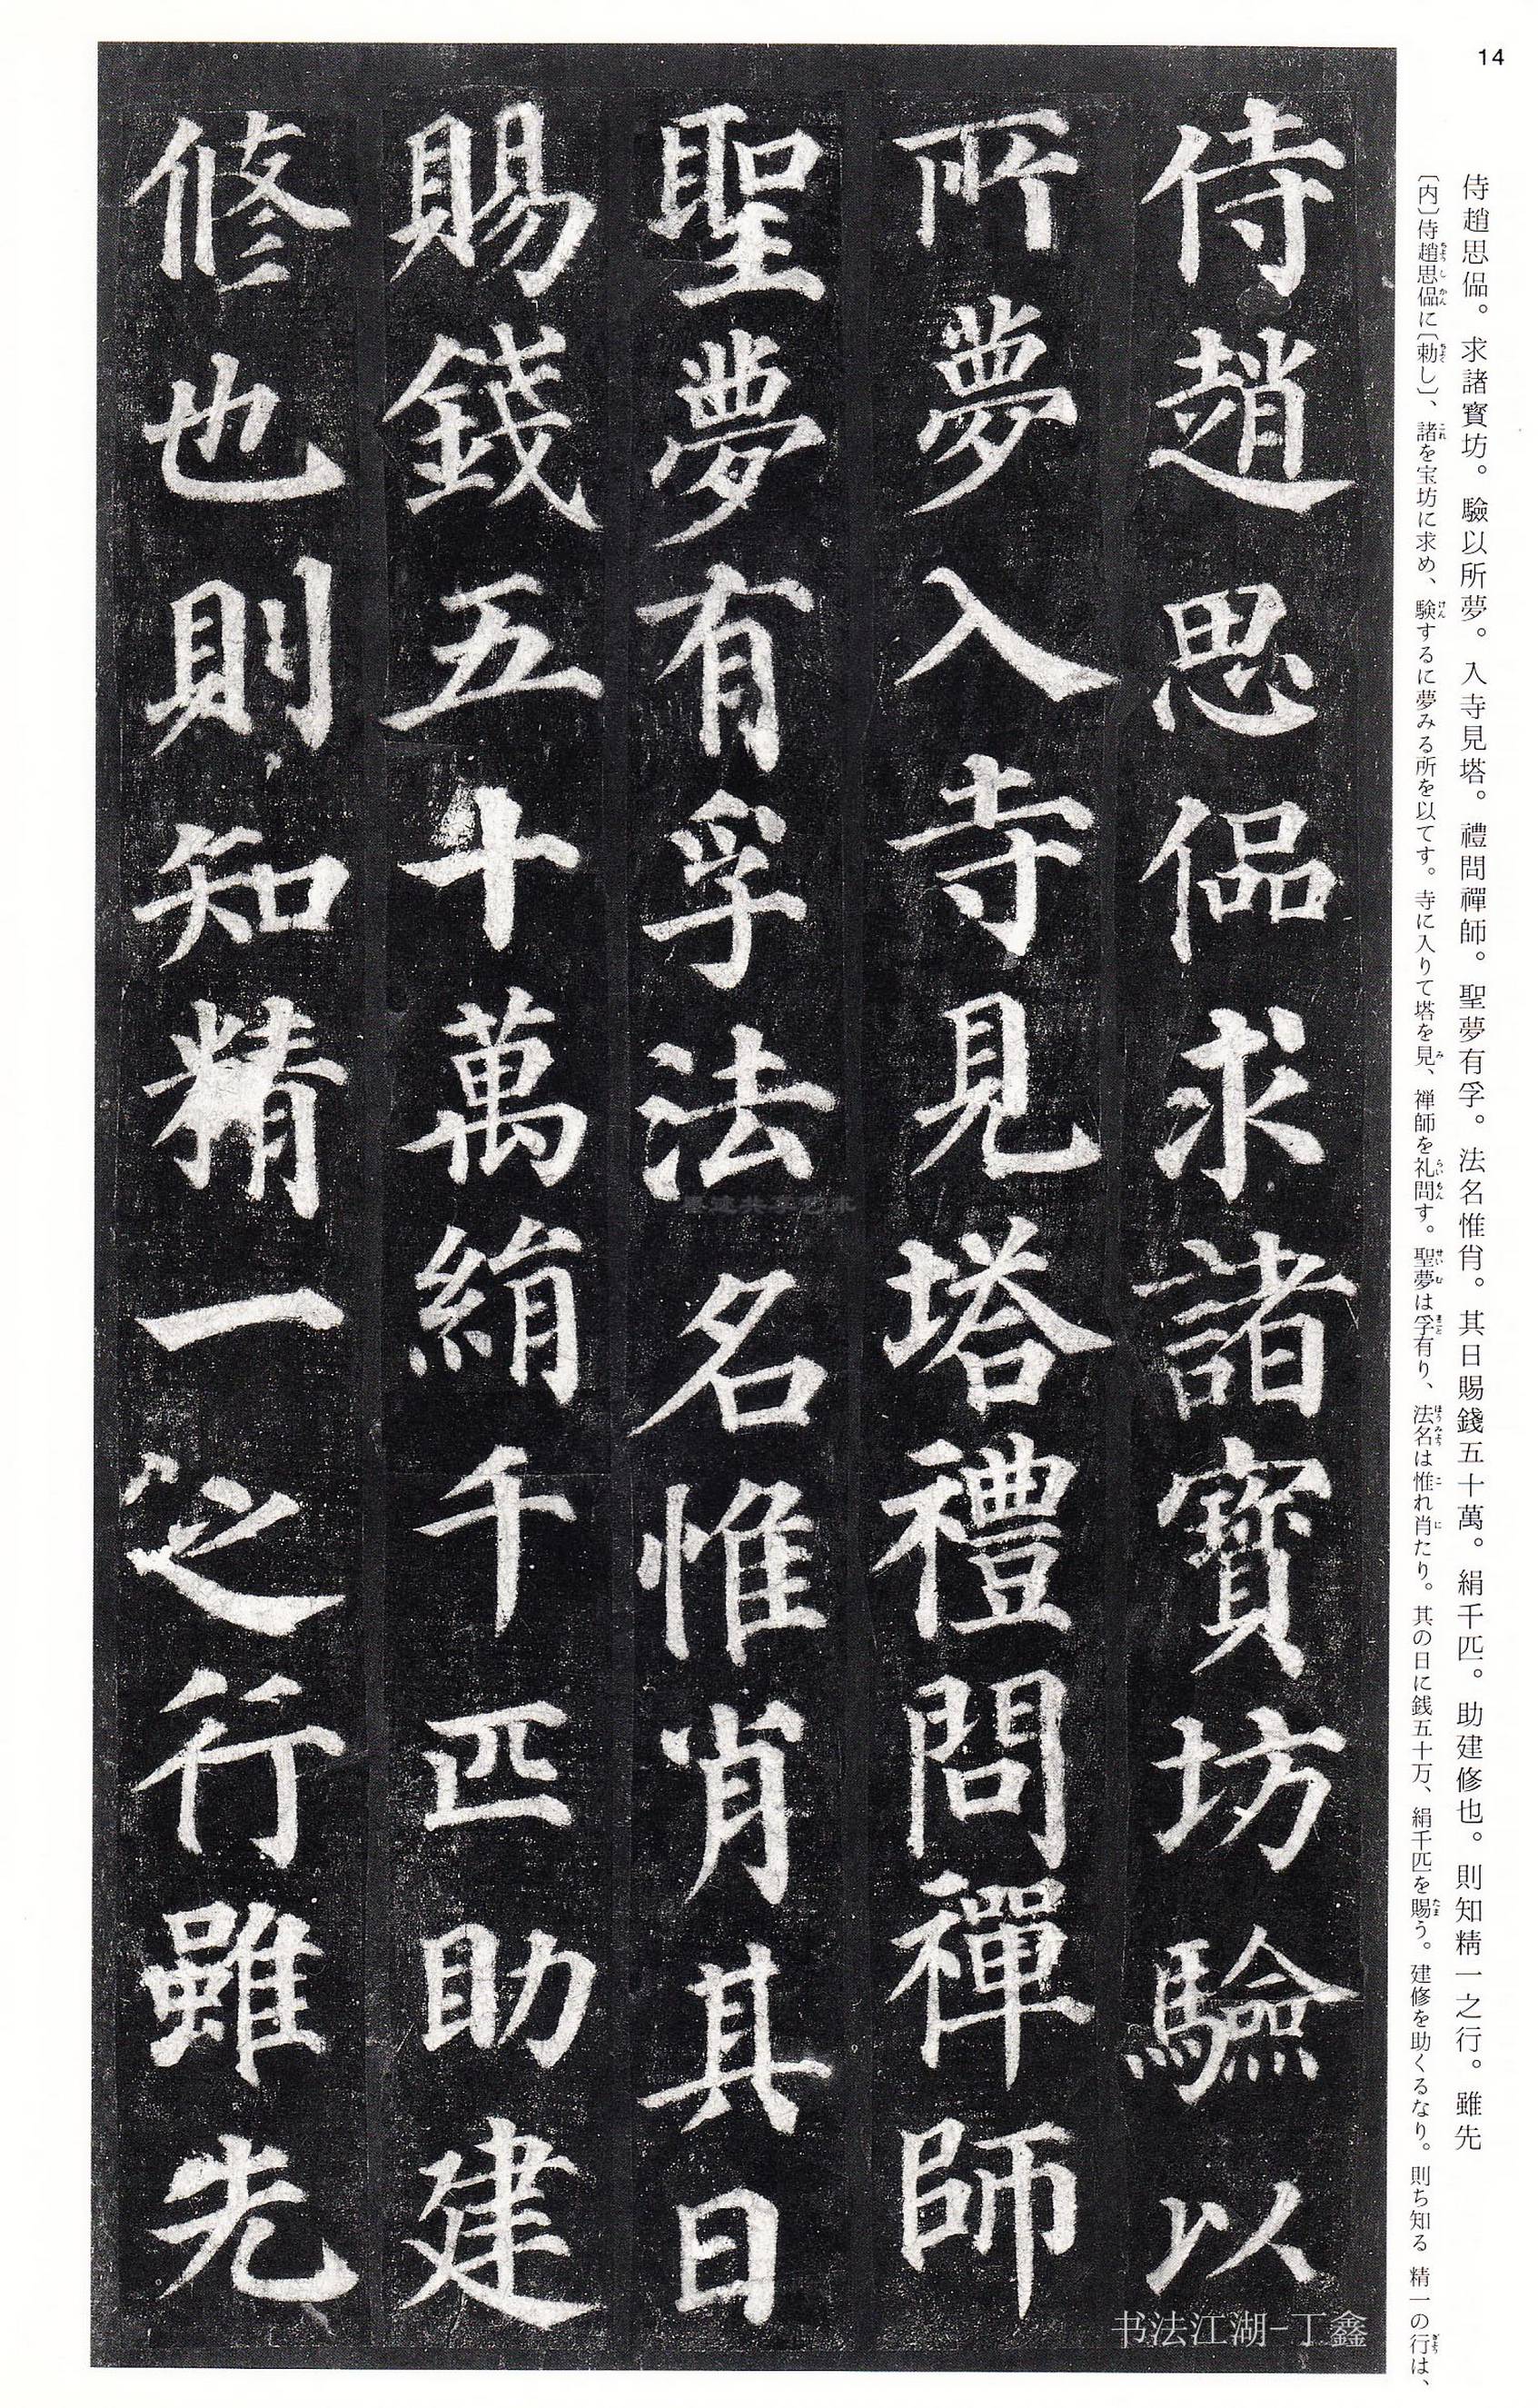 14
侍趙思偘。求諸寶坊。驗以所夢。入寺見塔。禮問禪師。聖夢有孚。法名惟肖。其日賜錢五十萬。絹千匹。助建修也。則知精一之行。雖先
〔内〕侍趙思偘に〔勅し〕、諸を宝坊に求め、験するに夢みる所を以てす。寺に入りて塔を見、禅師を礼問す。聖夢は孚有り、法名は惟れ肖たり。其の日に銭五十万、絹千匹を賜う。建修を助くるなり。則ち知る 精一の行は、
侍趙思偘求諸寶坊驗以
所夢入寺見塔禮問禪師
聖夢有孚法名惟肖其日
賜錢五十萬絹千匹助建
修也則知精一之行雖先
书法江湖-丁鑫